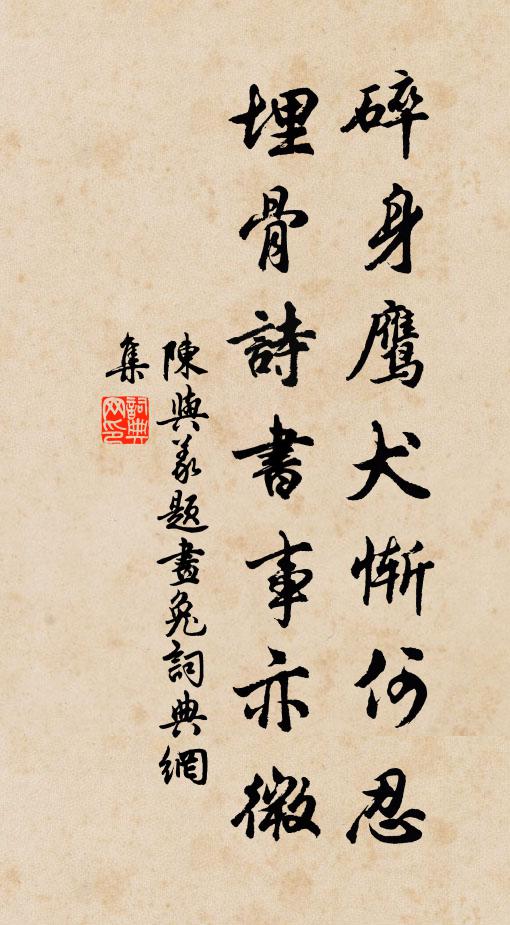 碎身鹰犬惭何忍
埋骨詩書事亦微
陳與義題畫兔詞典網
集
詞典网印